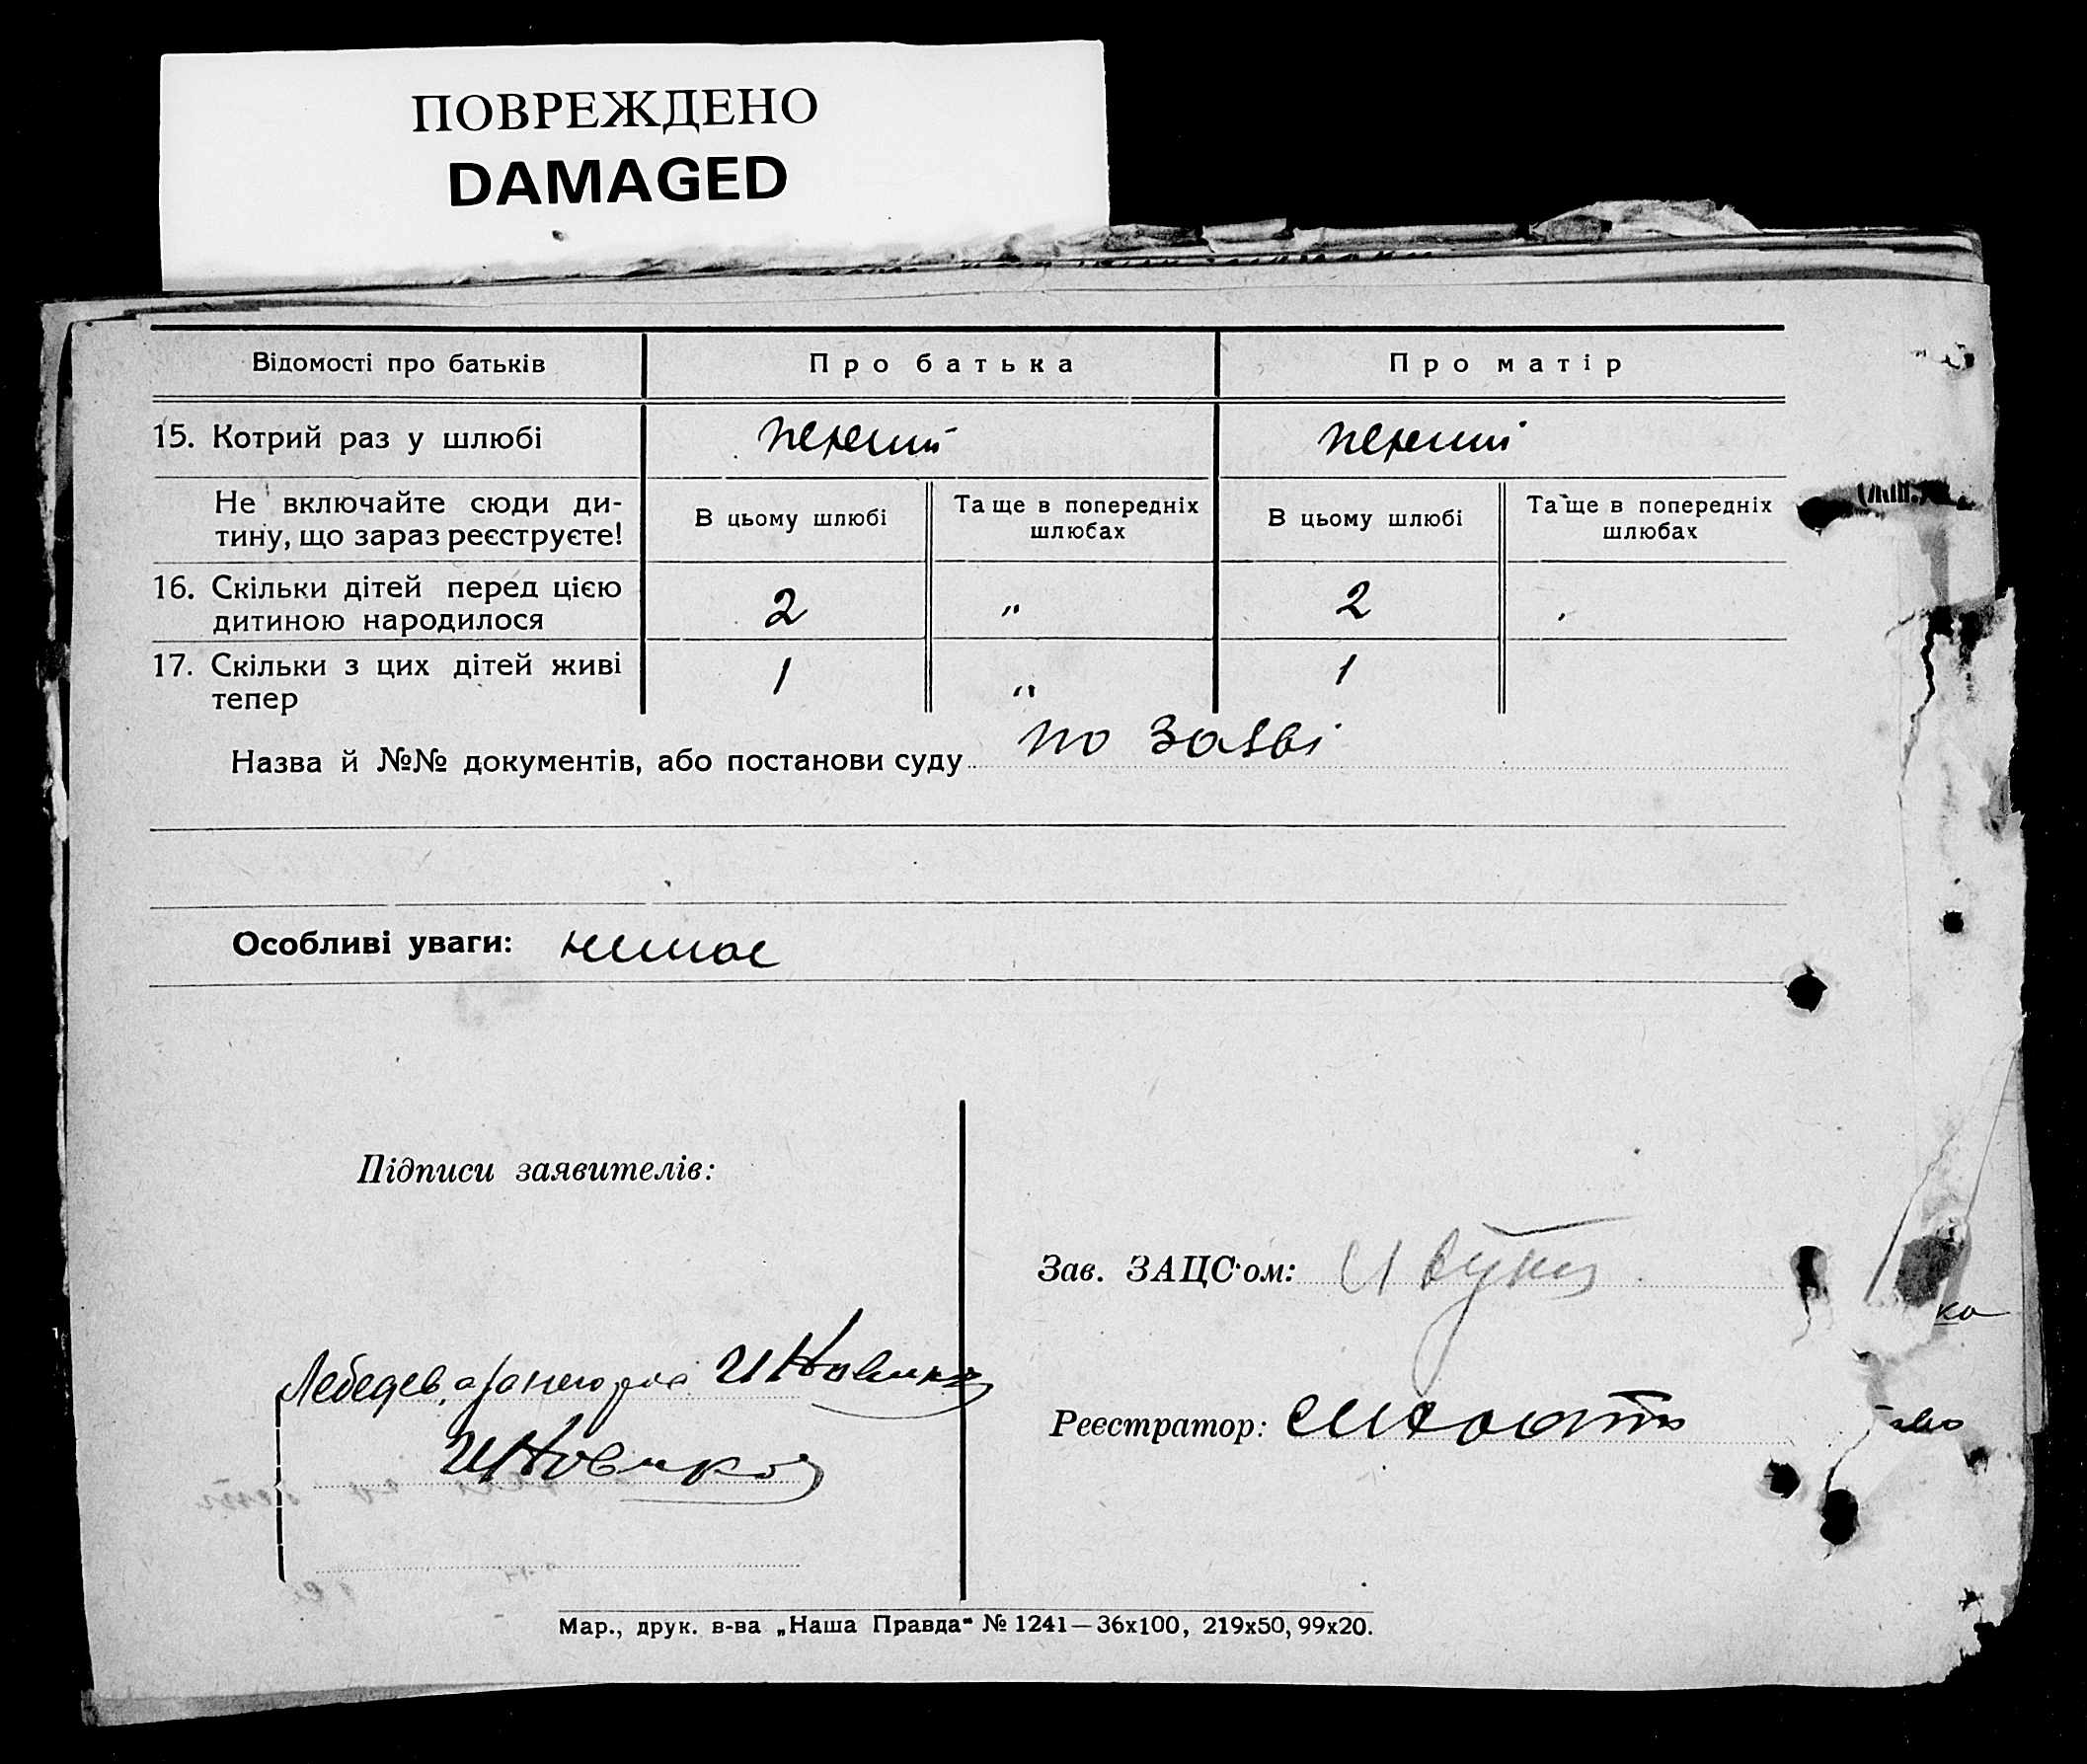 ПОВРЕЖДЕНО
DAMAGED
Відомості про батьків
Про батька
Про матір
15. Котрий раз у шлюбі
перший
перший
Не включайте сюди ди-
тину, що зараз реєструєте!
В цьому шлюбі
Та ще в попередніх
шлюбах
В цьому шлюбі
Та ще в попередніх
шлюбах
16. Скільки дітей перед цією
дитиною народилося
2
"
2
17. Скільки з цих дітей живі
тепер
1
"
1
Назва й №№ документів, або постанови суду по заяві
Особливі уваги: немає
Підписи заявителів:
Зав. ЗАЦС'ом:
Лебедев И Новико
И Новико
Реєстратор:
ко
Мар., друк. в-ва „Наша Правда“ № 1241—36х100, 219х50, 99х20.